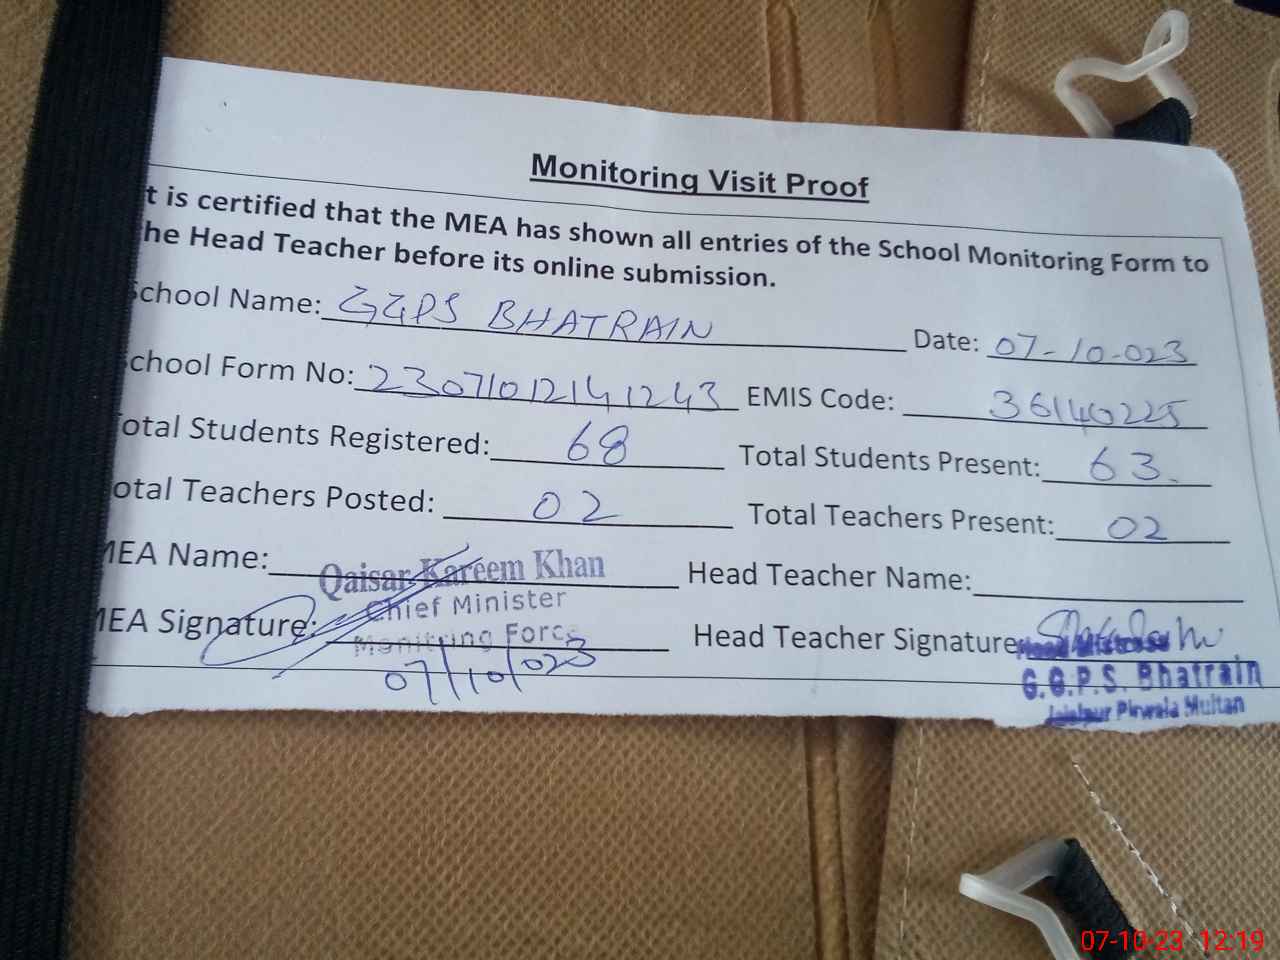 Monitoring Visit Proof
t is certified that the MEA has shown all entries of the School Monitoring Form to
he Head Teacher before its online submission.
School Name: GGPS BHATRAIN Date: 07-10-023
chool Form No: 23071012141243 EMIS Code: 36140225
otal Students Registered: 68 Total Students Present: 63.
otal Teachers Posted: 02 Total Teachers Present: 02
MEA Name: Qaisar Kareem Khan Head Teacher Name:
Chief Minister
MEA Signature: Head Teacher Signature
Monitring Force
07/10/023
G.G.P.S. Bhatrain
Jalalpur Pirwala Multan
07-10-23 12:19